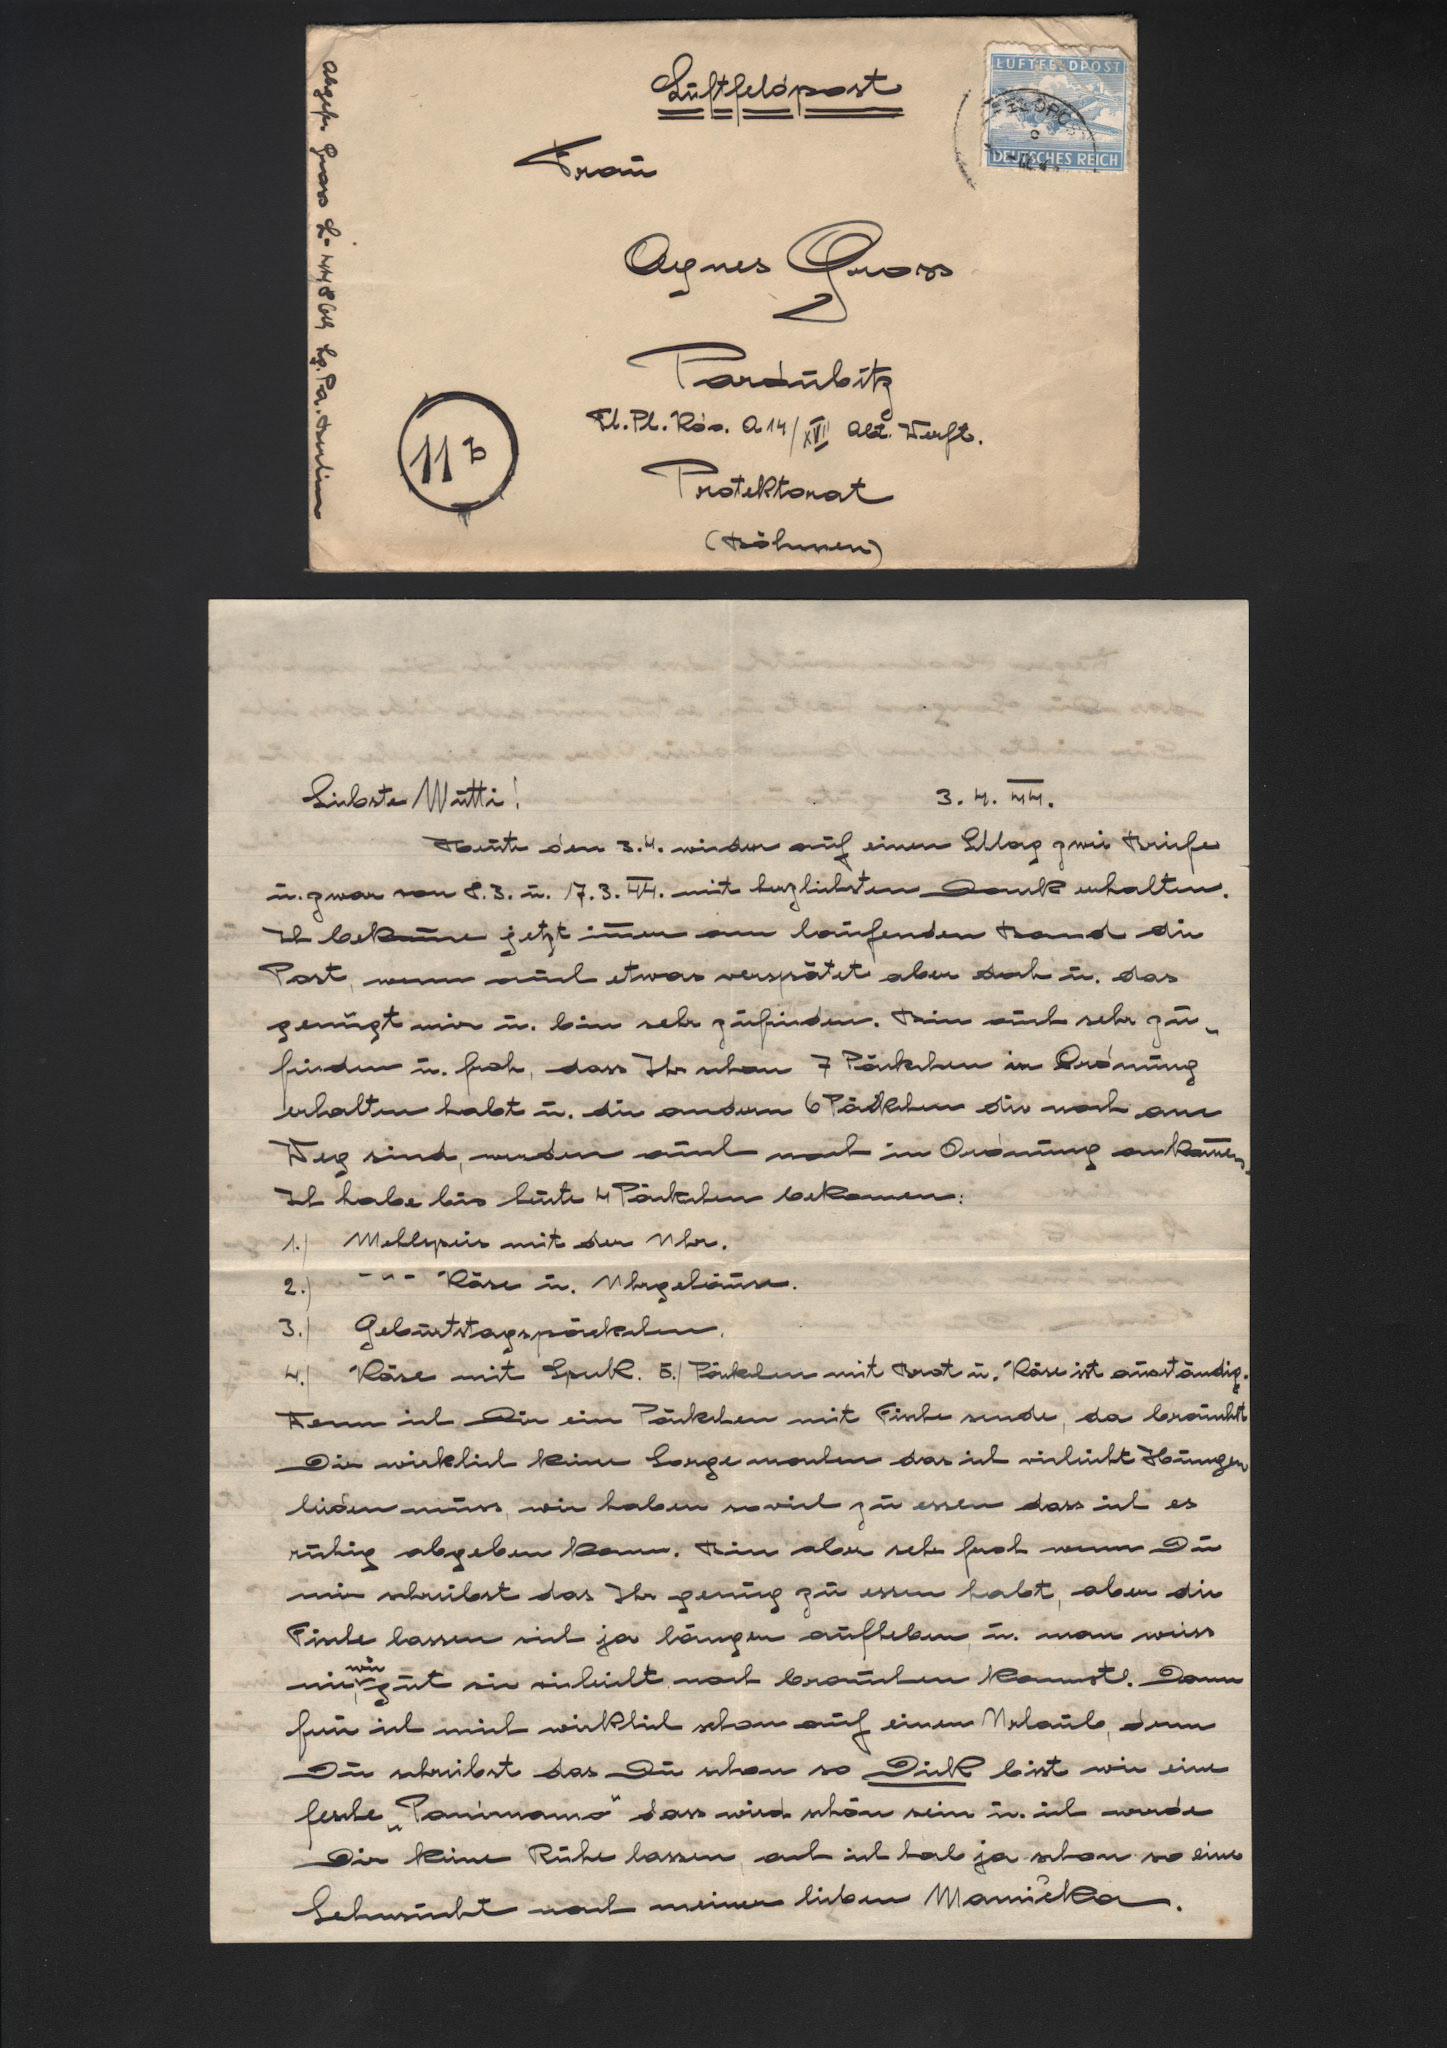 Luftfeldpost
LUFTFELDPOST
DEUTSCHES REICH
Frau
Agnes Gross
Pardubitz
Fl.Pl.Kdo. A 14/XVII Abt. Werft.
Protektorat
(Böhmen)
11b
Abgeber Gross L- 44864 Lg.Pa. Berlin
Liebste Mutti! 3.4.44.
Heute den 3.4. wieder auf einen Schlag zwei Briefe
u. zwar von 8.3. u. 17.3.44. mit herzlichsten Dank erhalten.
Ich bekom̄e jetzt im̄er am laufenden Band die
Post, wenn auch etwas verspätet aber doch u. das
genügt mir u. bin sehr zufrieden. Bin auch sehr zu-
frieden u. froh, dass Ihr schon 7 Päckchen in Ordnung
erhalten habt u. die andern 6 Päckchen die noch am
Weg sind, werden auch noch in Ordnung ankom̄en.
Ich habe bis heute 4 Päckchen bekomen:
1.) Mehlspeis mit der Uhr.
2.) - " - Käse u. Uhrgehäuse.
3.) Geburtstagspäckchen.
4.) Käse mit Speck. 5.) Päckchen mit Brot u. Käse ist ausständig.
Wenn ich Dir ein Päckchen mit Fische sende, da brauchst
Dir wirklich keine Sorge machen das ich vieleicht Hunger
leiden muss, wir haben soviel zu essen dass ich es
ruhig abgeben kann. Bin aber sehr froh wenn Du
mir schreibst das Ihr genug zu essen habt, aber die
Fische lassen sich ja länger aufheben u. man weiss
nie, wie gut sie vieleicht noch brauchen kannst. Dann
freu ich mich wirklich schon auf einen Urlaub, denn
Du schreibst das Du schon so Dick bist wie eine
fesche „Panimamo" dass wird schön sein u. ich werde
Dir keine Ruhe lassen, ach ich hab ja schon so eine
Sehnsucht nach meiner lieben Mamička.